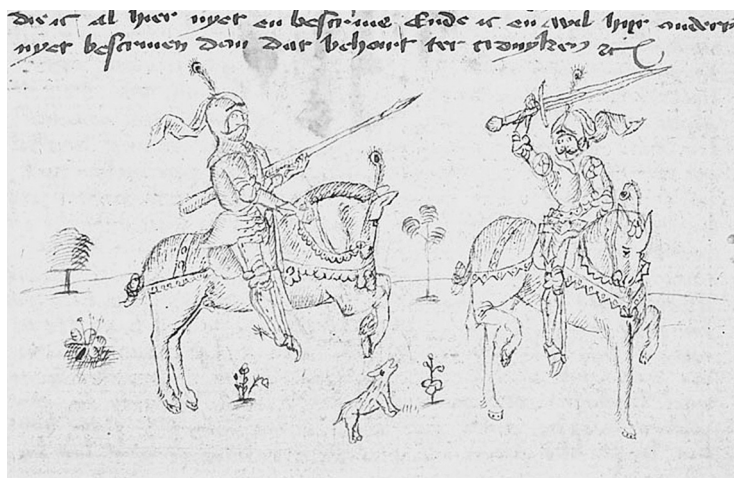 die ic al hier nyet en bescriue Ende ic en wil hyr
nyet bescriuen dan dat behoirt ter cronyken